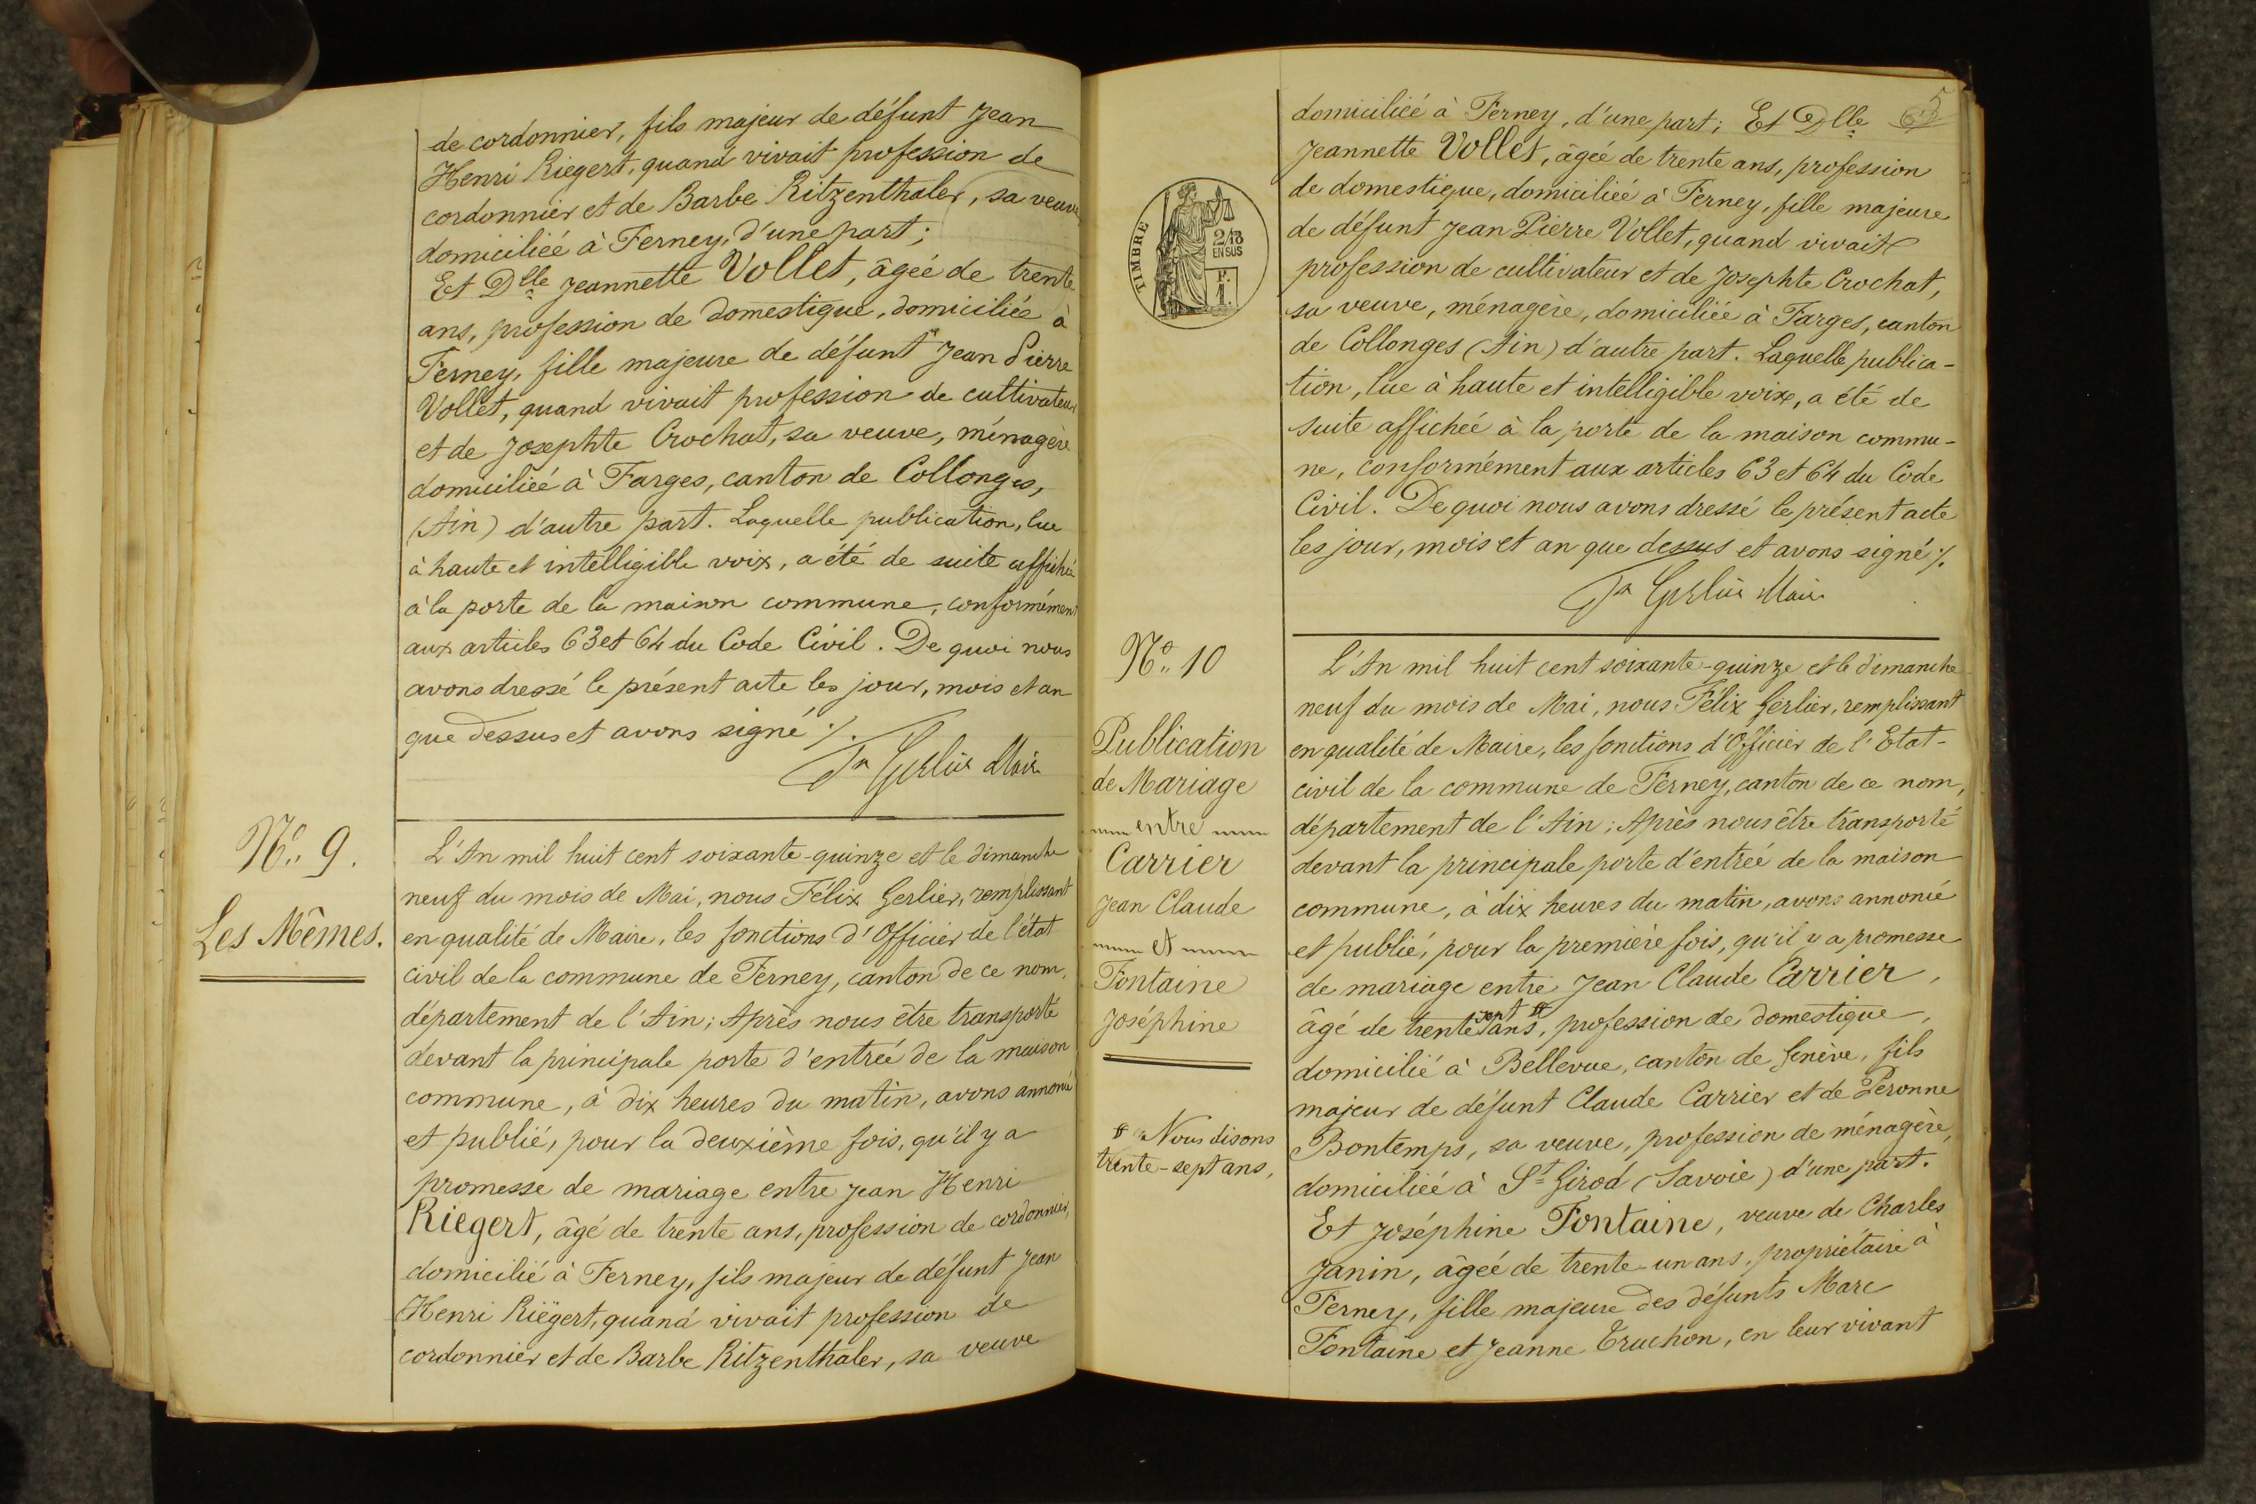 de cordonnier, fils majeur de défunt Jean
Henri Riegert, quand vivait profession de
cordonnier et de Barbe Ritzenthaler, sa veuve,
domiciliée à Ferney, d'une part;
Et Dlle Jeannette Vollet, âgée de trente
ans, profession de domestique, domiciliée à
Ferney, fille majeure de défunt Jean Pierre
Vollet, quand vivait profession de cultivateur
et de Josephte Crochat, sa veuve, ménagère
domiciliée à Farges, canton de Collonges,
(Ain) d'autre part. Laquelle publication, lue
à haute et intelligible voix, a été de suite affichée
à la porte de la maison commune, conformément
aux articles 63 et 64 du Code Civil. De quoi nous
avons dressé le présent acte les jour, mois et an
que dessus et avons signé ./.
Gerlier Maire
No. 9.
Les Mêmes.
L'An mil huit cent soixante-quinze et le dimanche
neuf du mois de Mai, nous Félix Gerlier, remplissant
en qualité de Maire, les fonctions d'Officier de l'état
civil de la commune de Ferney, canton de ce nom,
département de l'Ain; Après nous être transporté
devant la principale porte d'entrée de la maison
commune, à dix heures du matin, avons annoncé
et publié, pour la deuxième fois, qu'il y a
promesse de mariage entre Jean Henri
Riegert, âgé de trente ans, profession de cordonnier,
domicilié à Ferney, fils majeur de défunt Jean
Henri Riëgert, quand vivait profession de
cordonnier et de Barbe Ritzenthaler, sa veuve
5
TIMBRE
2/10
EN SUS
P.
1.
domiciliée à Ferney, d'une part; Et Dlle
Jeannette Vollet, âgée de trente ans, profession
de domestique, domiciliée à Ferney, fille majeure
de défunt Jean Pierre Vollet, quand vivait
profession de cultivateur et de Josephte Crochat,
sa veuve, ménagère, domiciliée à Farges, canton
de Collonges (Ain) d'autre part. Laquelle publica-
tion, lue à haute et intelligible voix, a été de
suite affichée à la porte de la maison commu-
ne, conformément aux articles 63 et 64 du Code
Civil. De quoi nous avons dressé le présent acte
les jour, mois et an que dessus et avons signé ./.
Gerlier Maire
No. 10
Publication
de Mariage
entre
Carrier
Jean Claude
et
Fontaine
Joséphine
Nous disons
trente-sept ans,
L'An mil huit cent soixante-quinze et le dimanche
neuf du mois de Mai, nous Félix Gerlier, remplissant
en qualité de Maire, les fonctions d'Officier de l'Etat-
civil de la commune de Ferney, canton de ce nom,
département de l'Ain; Après nous être transporté
devant la principale porte d'entrée de la maison
commune, à dix heures du matin, avons annoncé
et publié, pour la première fois, qu'il y a promesse
de mariage entre Jean Claude Carrier,
âgé de trente sept ans, profession de domestique,
domicilié à Bellevue, canton de Genève, fils
majeur de défunt Claude Carrier et de Péronne
Bontemps, sa veuve, profession de ménagère,
domiciliée à St Girod (Savoie) d'une part.
Et Joséphine Fontaine, veuve de Charles
Janin, âgée de trente-un ans, propriétaire à
Ferney, fille majeure des défunts Marc
Fontaine et Jeanne Truchon, en leur vivant